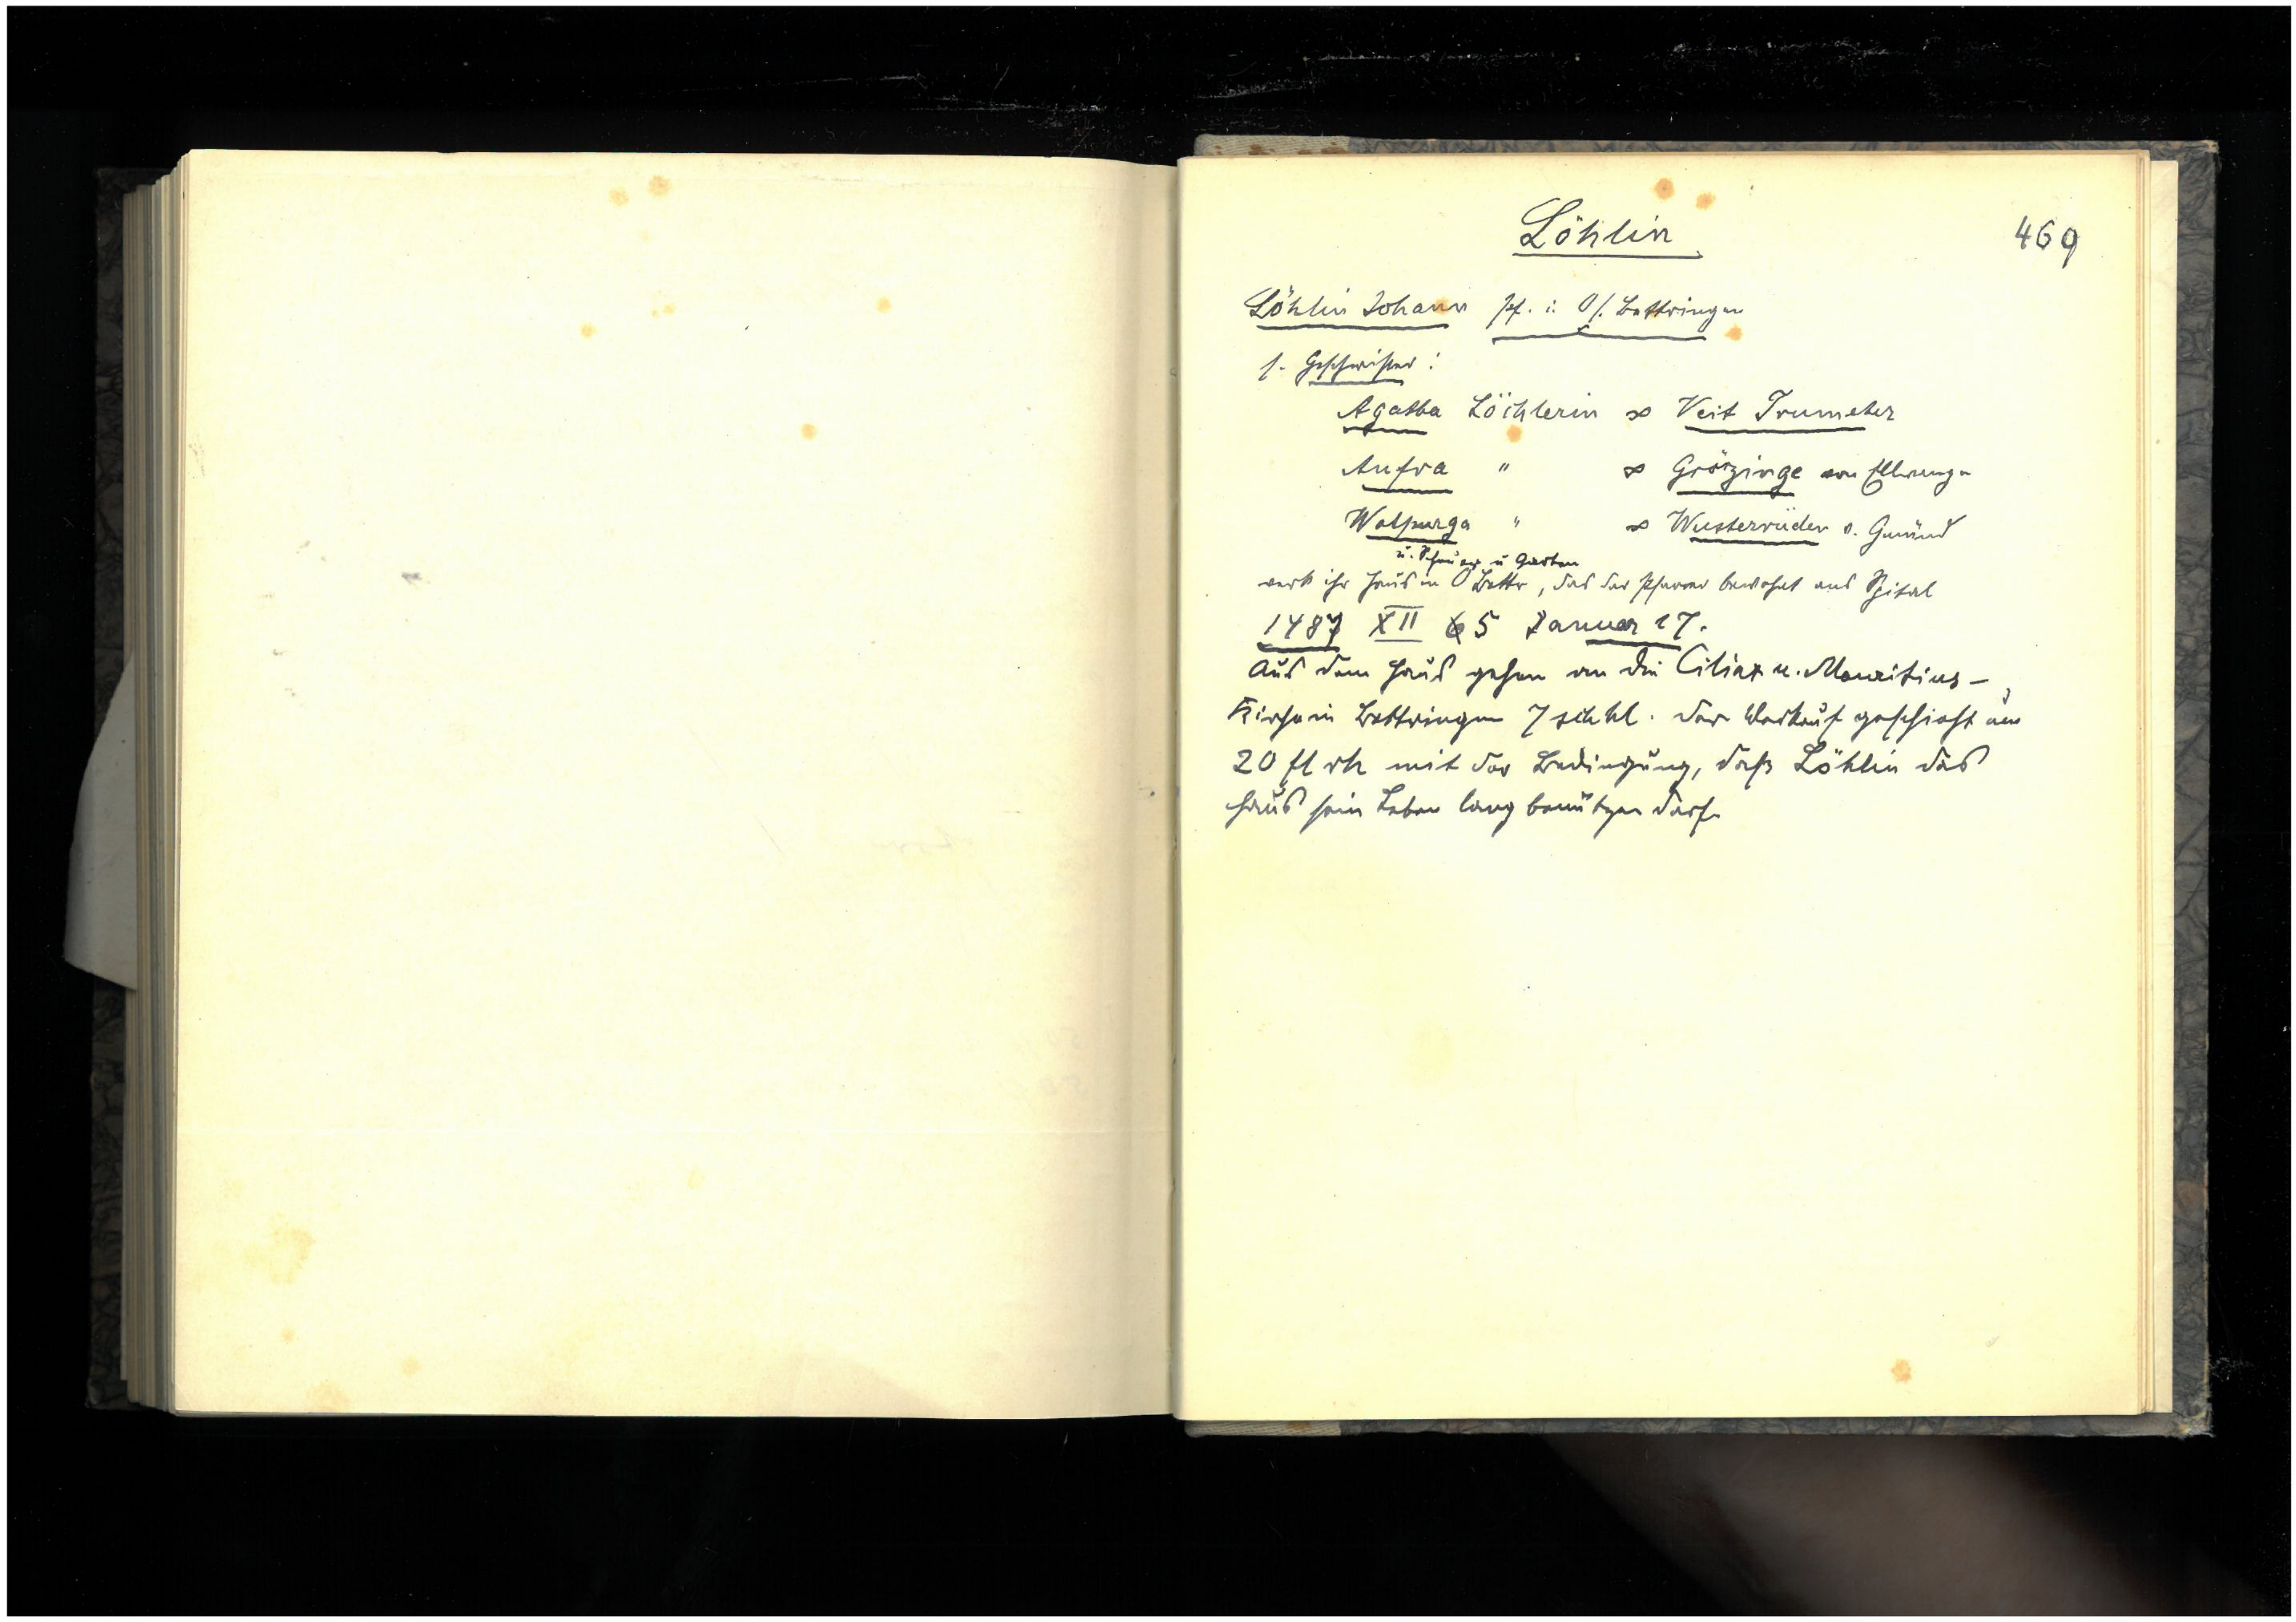 Löhlin
469
Löhlin Johann Pf. i. O/. Bettringen
s. Geschwister:
Agatha Löchlerin ∞ Veit Trumeter
Anfra " ∞ Grözinge von Ellwangen
Walpurga " ∞ Wusterrieder v. Gmünd
u. Scheuer u Garten
verk ihr Haus in O Bettr, das der Pfarrer bewohnt ans Spital
1487 XII 65 Januar 17.
Aus dem Haus gehen an die Ciliax u. Mauritius-
Kirche in Bettringen 7 sch hl. Der Verkauf geschieht um
20 fl rh mit der Bedingung, daß Löhlin das
Haus sein Leben lang benützen darf.